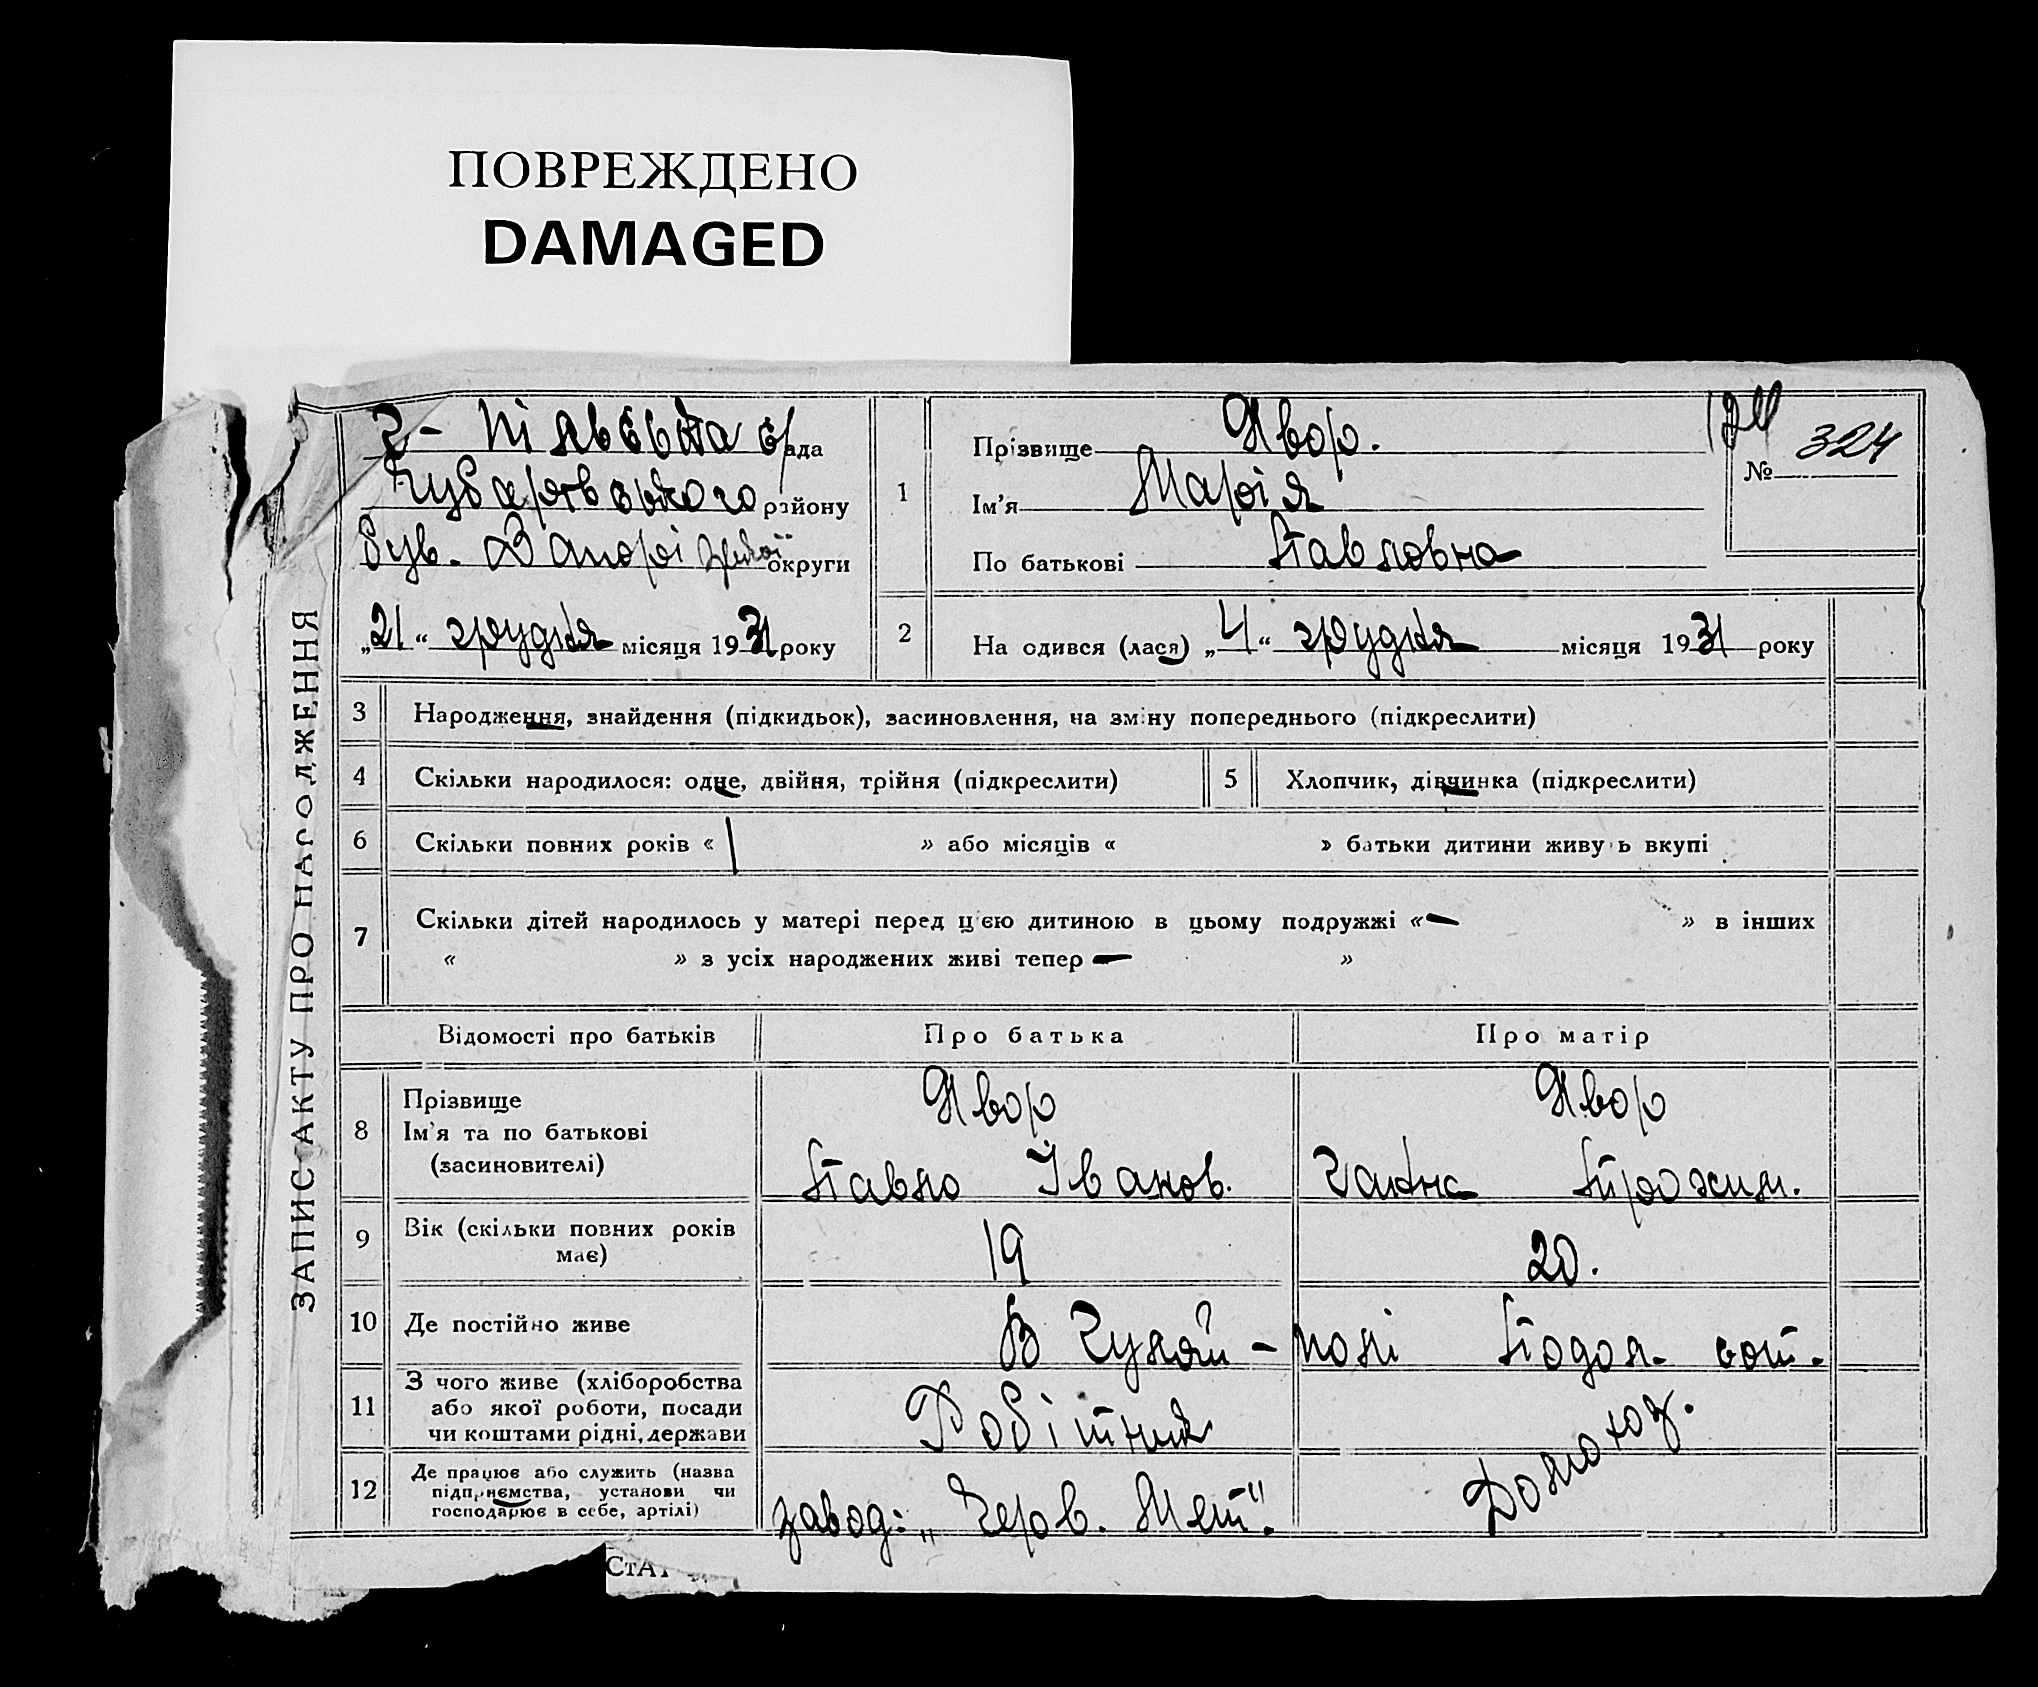 ПОВРЕЖДЕНО
DAMAGED
ЗАПИС АКТУ ПРО НАРОДЖЕННЯ
Г- Пільська с/рада
Чубарівського району
був. Запорізької округи
„21“ грудня місяця 1931 року
1
Прізвище Явор.
Ім'я Марія
По батькові Павловна
№ 324
2
На одився (лася) „4“ грудня місяця 1931 року
3 Народження, знайдення (підкидьок), засиновлення, на зміну попереднього (підкреслити)
4 Скільки народилося: одне, двійня, трійня (підкреслити)
5 Хлопчик, дівчинка (підкреслити)
6 Скільки повних років « 1 » або місяців « » батьки дитини живуть вкупі
7 Скільки дітей народилось у матері перед цією дитиною в цьому подружжі « — » в інших
« » з усіх народжених живі тепер — »
Відомості про батьків Про батька Про матір
8 Прізвище
Ім'я та по батькові
(засиновителі)
Явор
Павло Іванов.
Явор
Ганна Трохим.
9 Вік (скільки повних років
має)
19
20.
10 Де постійно живе
В Гуляй-полі Подол. сот.
11 З чого живе (хліборобства
або якої роботи, посади
чи коштами рідні, держави
Робітник
Домогоз.
12 Де працює або служить (назва
підприємства, установи чи
господарює в себе, артілі)
завод: „Черв. Мет."
СТАТ